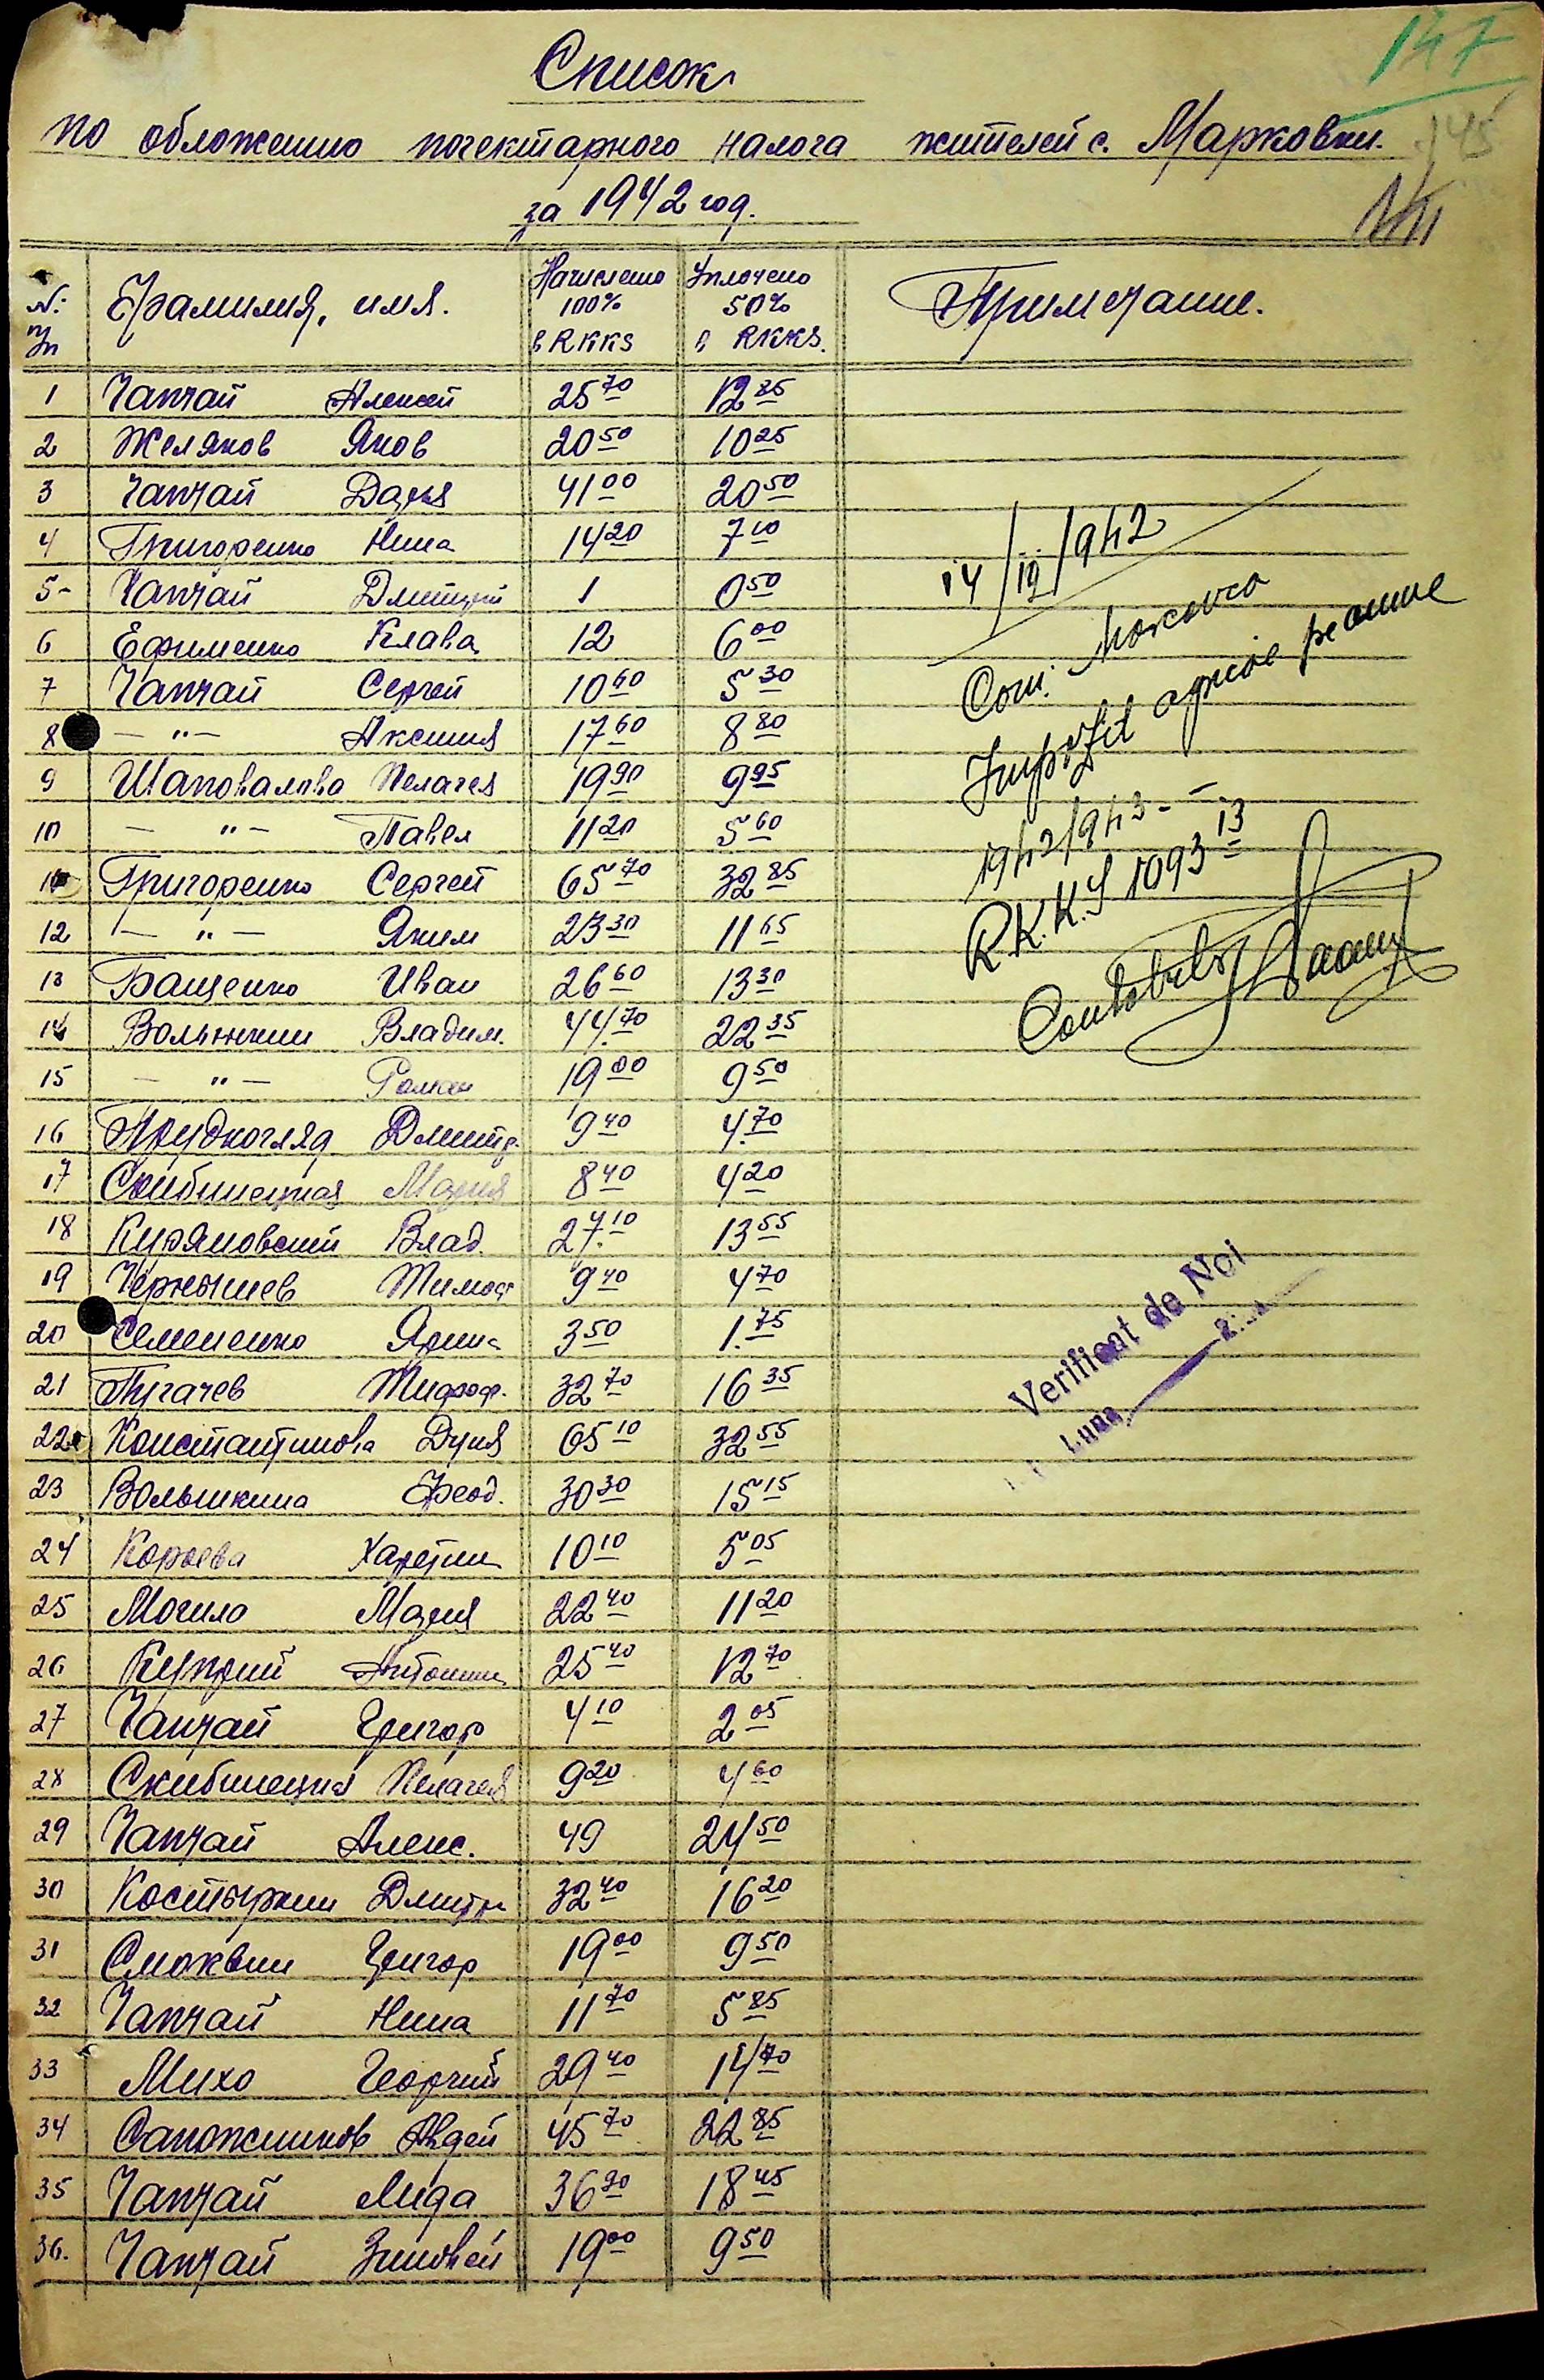 147
Список
по обложению погектарного налога жителей с. Марковки.
145
за 1942 год.
№ п/п Фамилия, имя. Начислено 100% в RKKS Уплочено 50% в RKKS. Примечание.
1 Чапчай Алексей 25 70 12 85
2 Желяков Яков 20 50 10 25
3 Чапчай Дарья 41 00 20 50
4 Григоренко Нина 14 20 7 10
5 Чапчай Дмитрий 1 0 50
6 Ефименко Клава 12 6 00
7 Чапчай Сергей 10 60 5 30
8 — " — Аксиния 17 60 8 80
9 Шаповалова Пелагея 19 90 9 95
10 — " — Павел 11 20 5 60
11 Григоренко Сергей 65 70 32 85
12 — " — Яким 23 30 11 65
13 Бащенко Иван 26 60 13 30
14 Волынкин Владим. 44 70 22 35
15 — " — Роман 19 00 9 50
16 Прудкогляд Дмитр. 9 40 4 70
17 Скибинецкая Мария 8 40 4 20
18 Куряновский Влад. 27 10 13 55
19 Чернышев Тимоф 9 40 4 70
20 Семененко Ярина 3 50 1. 75
21 Пугачев 32 70 16 35
22 Константинова Дуня 65 10 32 55
23 Волынкина Феод. 30 30 15 15
24 Короева Харетин 10 10 5 05
25 Могила Мария 22 40 11 20
26 Куприй Антонина 25 40 12 70
27 Чапчай Григор 4 10 2 05
28 Скибинецкая Пелагея 9 20 4 60
29 Чапчай Алекс. 49 24 50
30 Костыркин Дмитри 32 40 16 20
31 Смоквин Григор 19 00 9 50
32 Чапчай Нина 11 70 5 85
33 Михо Георгий 29 40 14 70
34 Сапожников Авдей 45 70 22 85
35 Чапчай Лида 36 90 18 45
36. Чапчай Зиновей 19 00 9 50
14/12/1942
Com. Marcovca
Impozit agricol pe anul
1942/943 -
R.K.K.S 1093 13
Contabil
Verificat de Noi
Luna